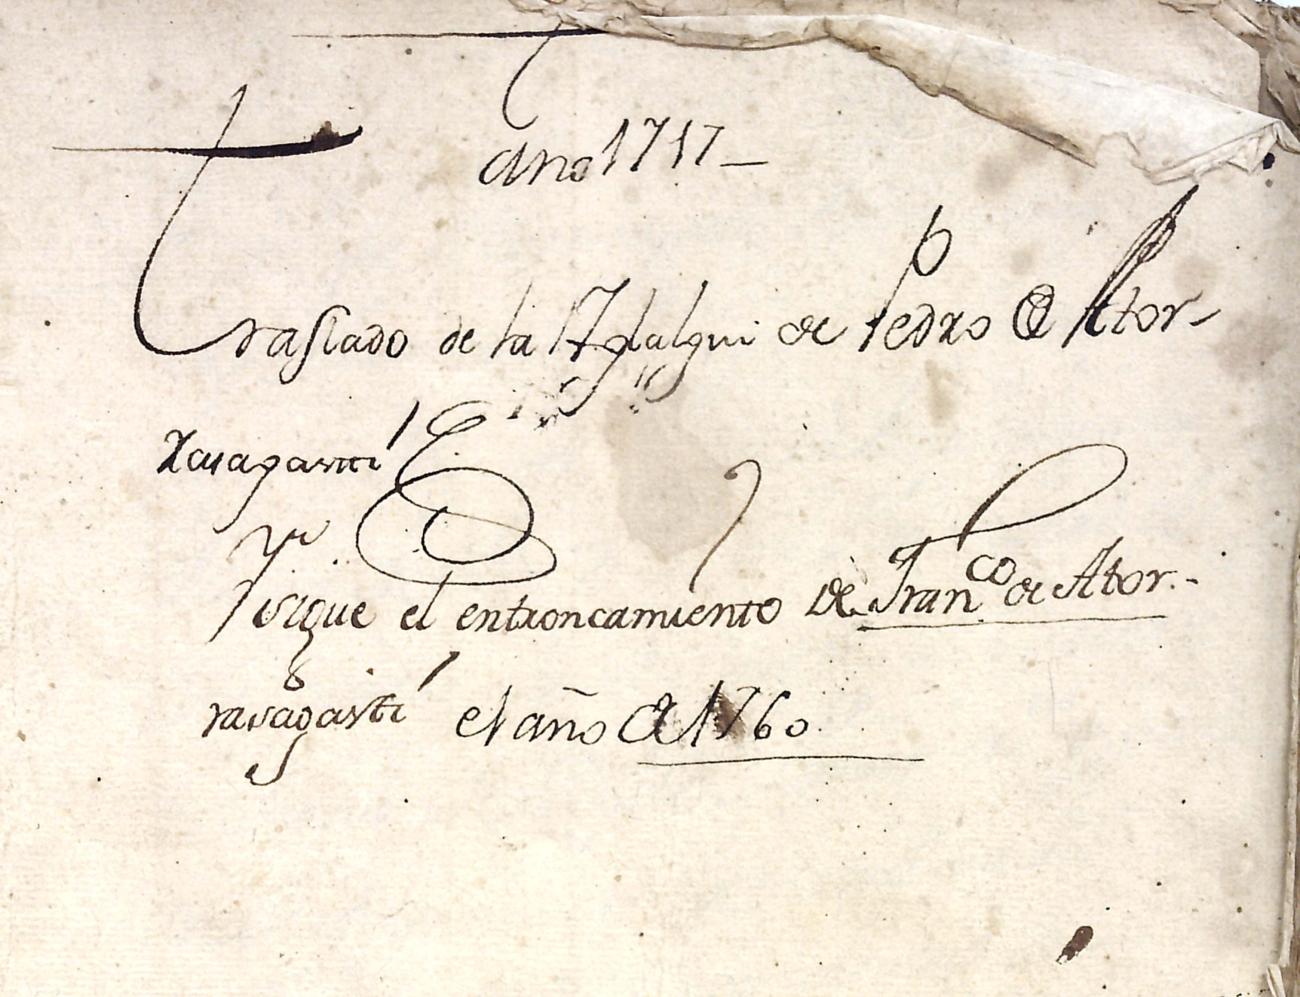 Año 1717
Traslado de la Ydalgui de Pedro de Ator-
rasagasti
Y
sigue el entroncamiento de Franco de Ator-
rasagasti el año de 1760.